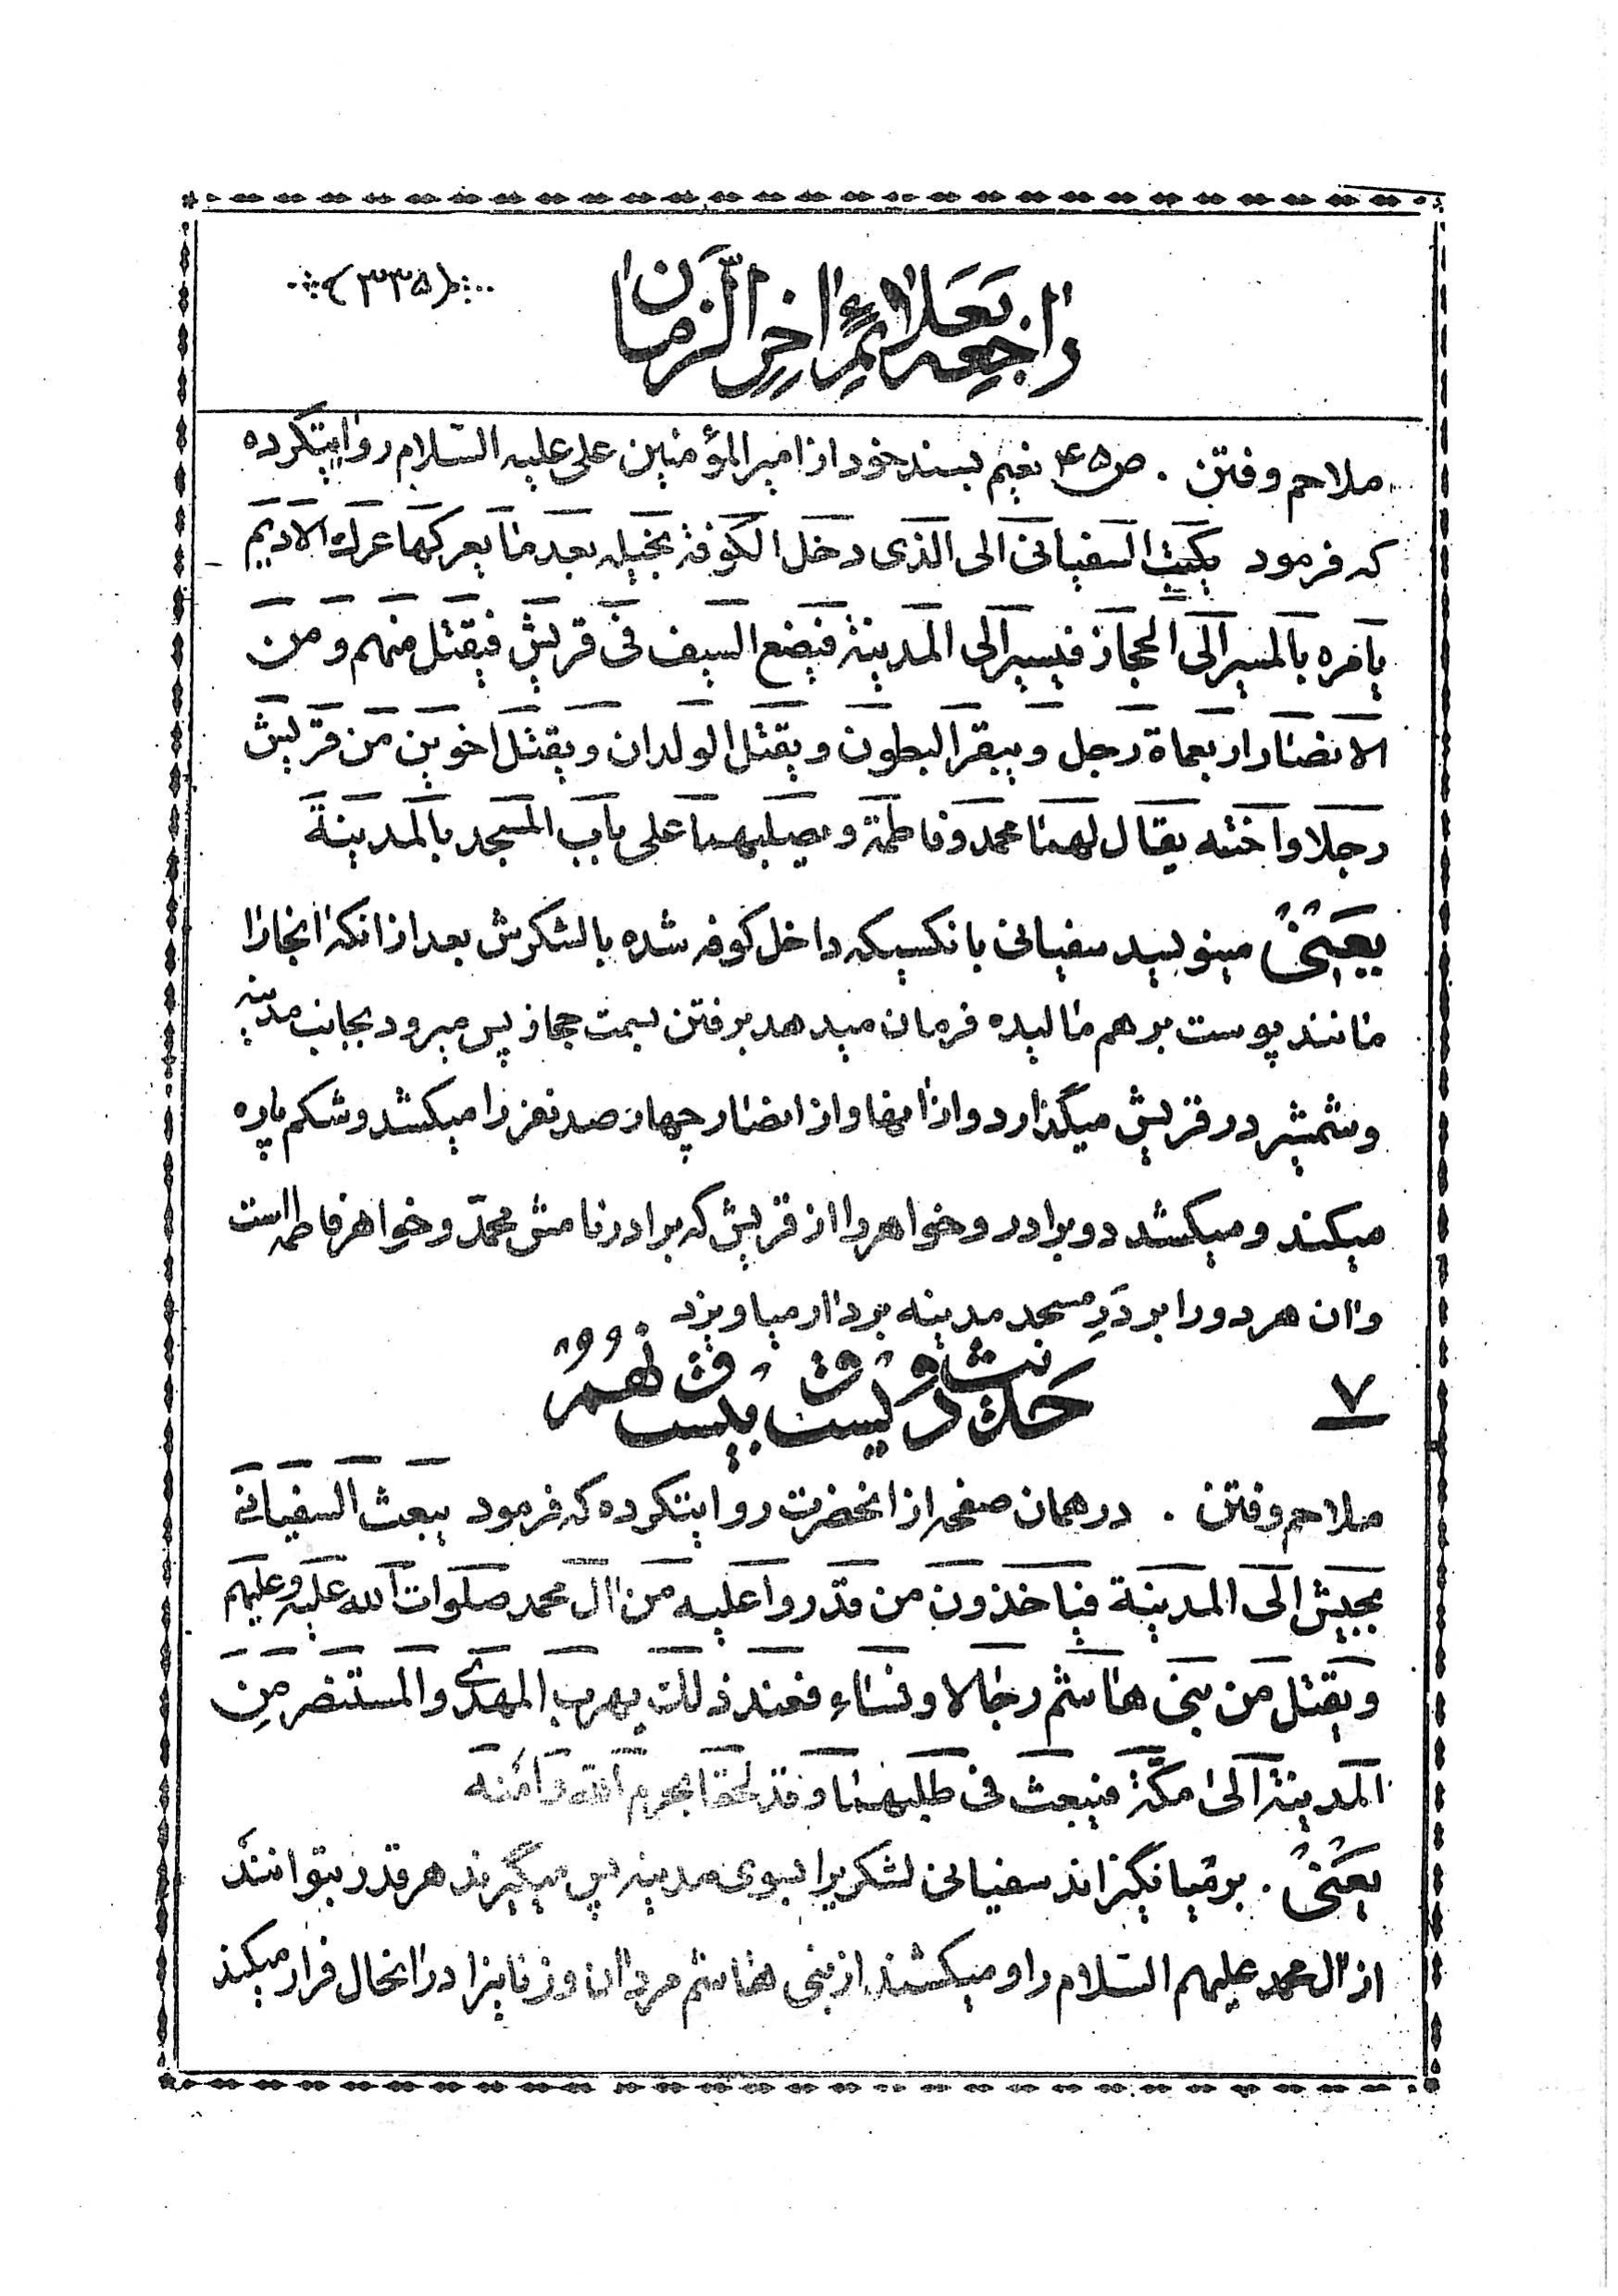 راجعه بعلائم اخر الزمان
(۳۳۵)
ملاحم و فتن . ص۴۵ نعیم بسند خود از امیر المؤمنین علی علیه السّلام روایتکرده
که فرمود یکتب السفیانی الی الذی دخل الکوفة بخیله بعد ما یعرکها عرك الادیم
یأمره بالمسیر الی الحجاز فیسیر الی المدینة فیضع السیف فی قریش فیقتل منهم و من
الانصار اربعماة رجل و یبقر البطون و یقتل الولدان و یقتل اخوین من قریش
رجلا و اخته یقال لهما محمد و فاطمة و یصلبهما علی باب المسجد بالمدینة
یعنی مینویسد سفیانی بانکسیکه داخل کوفه شده بالشکرش بعد از انکه انجارا
مانند پوست بر هم مالیده فرمان میدهد برفتن بسمت حجاز پس میرود بجانب مدینه
و شمشیر در قریش میگذارد و از انها و از انصار چهار صد نفر را میکشد و شکم پاره
میکند و میکشد دو برادر و خواهر را از قریش که برادر نامش محمّد و خواهر فاطمه است
و ان هر دو را بر دَرِ مسجد مدینه بردار میاویزد
۷
حدیث دویست و بیست و نهم
ملاحم و فتن . در همان صفحه از انحضرت روایتکرده که فرمود یبعث السفیانی
بجیش الی المدینة فیاخذون من قدروا علیه من ال محمد صلوات الله علیه و علیهم
و یقتل من بنی هاشم رجالا و نساء فعند ذلك یهرب المهدی و المستنصر من
المدینة الی مکّة فیبعث فی طلبهما و قد لحقا بحرم الله و امنه
یعنی . برمیانگیزاند سفیانی لشکریرا بسوی مدینه پس میگیرند هر قدر بتوانند
از ال محمد علیهم السّلام را و میکشند از بنی هاشم مردان و زنانیرا در انحال فرار میکند